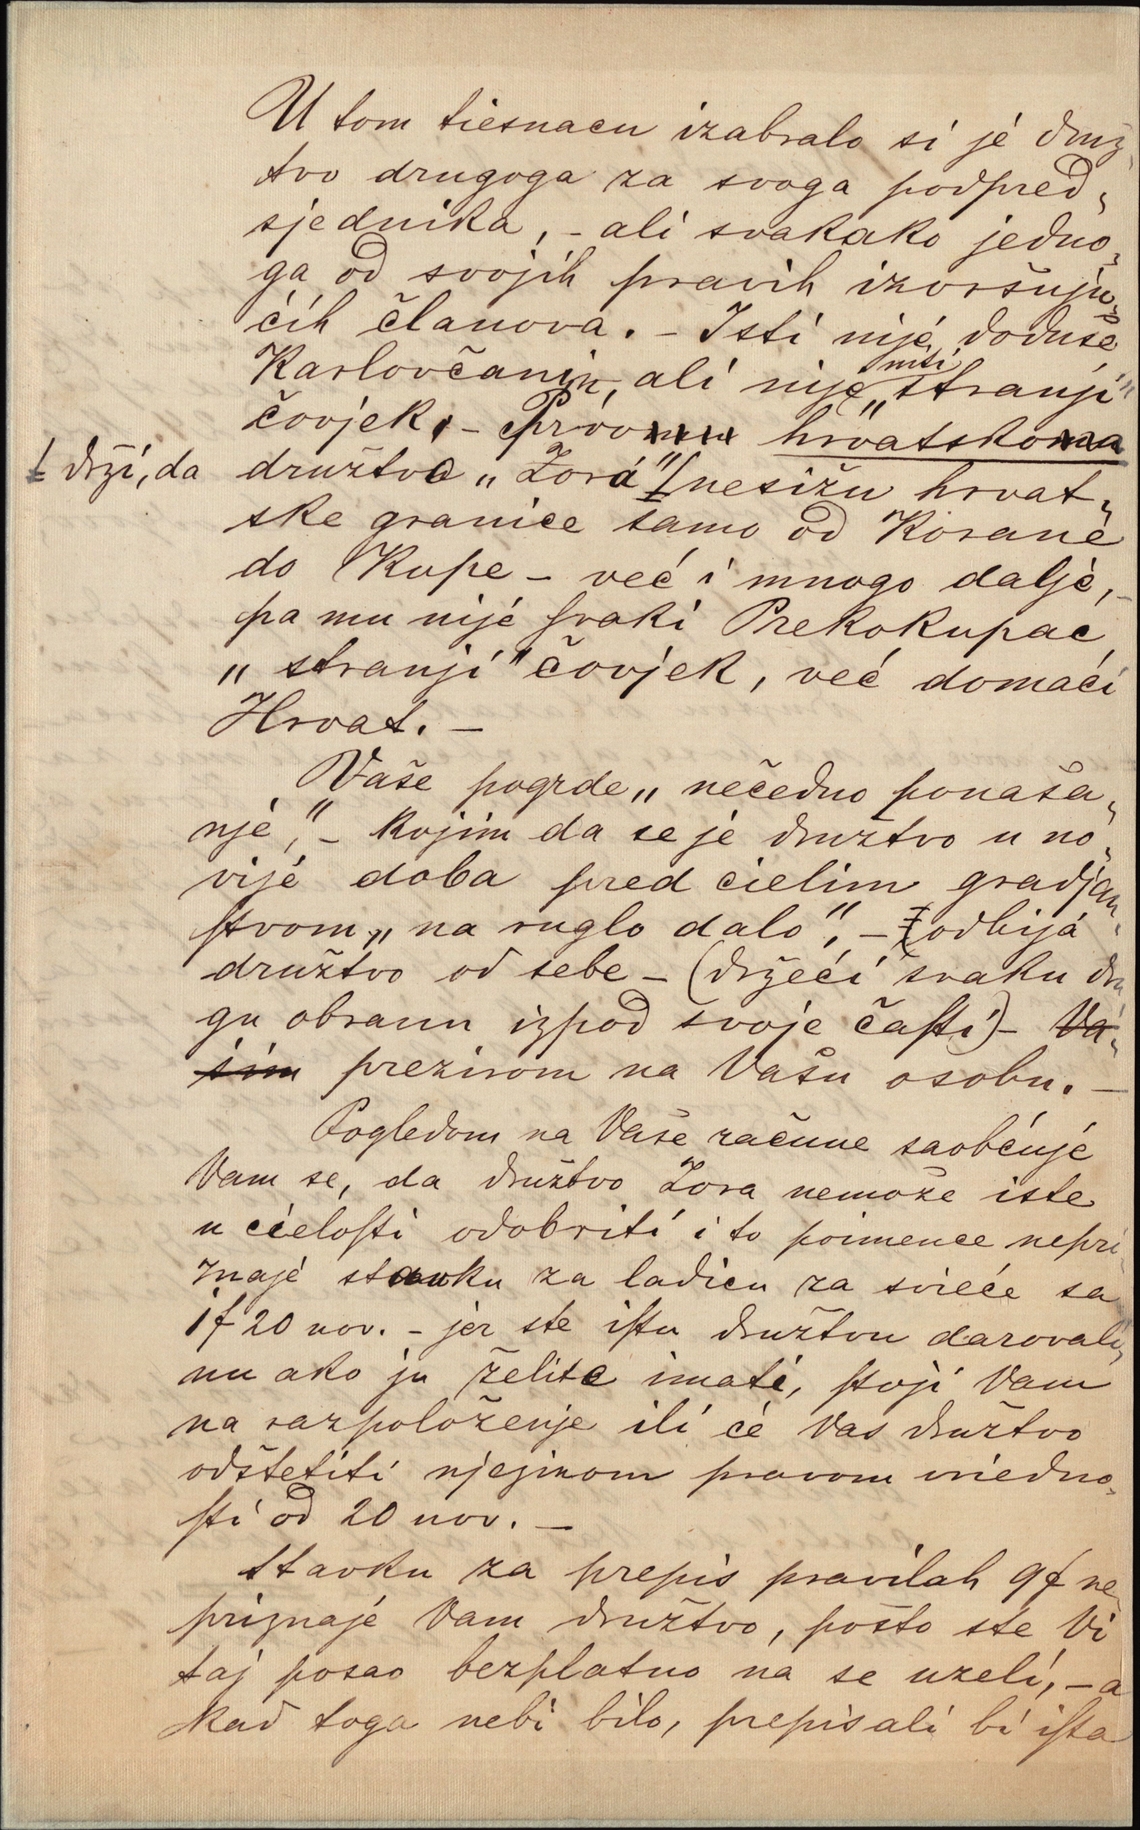 U tom tiesnacu izabralo si je druž„
tvo drugoga za svoga podpred„
sjednika, – ali svakako jedno„
ga od svojih pravih izvršuju„
ćih članova. – Isti nije doduše
Karlovčanin, ali nije niti „stranji“
čovjek, – Prvo hrvatsko
družtvo „Zora“ drži, da nesižu hrvat„
ske granice samo od Korane
do Kupe – već i mnogo dalje, –
pa mu nije svaki Prekokupac
„stranji“ čovjek, već domaći
Hrvat. –
Vaše pogrde „nečedno ponaša„
nje,“ – kojim da se je družtvo u no„
vije doba pred cielim gradjan„
stvom, „na ruglo dalo“, – odbija
družtvo od sebe – (držeći svaku dru„
gu obranu izpod svoje časti) – Va„
šim prezirom na Vašu osobu. –
Pogledom na Vaše račune saobćuje
Vam se, da družtvo Zora nemože iste
u cielosti odobriti i to poimence nepri„
znaje stavku za ladicu za svieće sa
1f 20 nov. – jer ste istu družtvu darovali,
nu ako ju želite imati, stoji Vam
na razpoloženje ili će Vas družtvo
odštetiti njezinom pravom vriedno„
sti od 20 nov. –
Stavku za prepis pravilah 9f ne
priznaje Vam družtvo, pošto ste Vi
taj posao bezplatno na se uzeli, – a
kad toga nebi bilo, prepisali bi ista